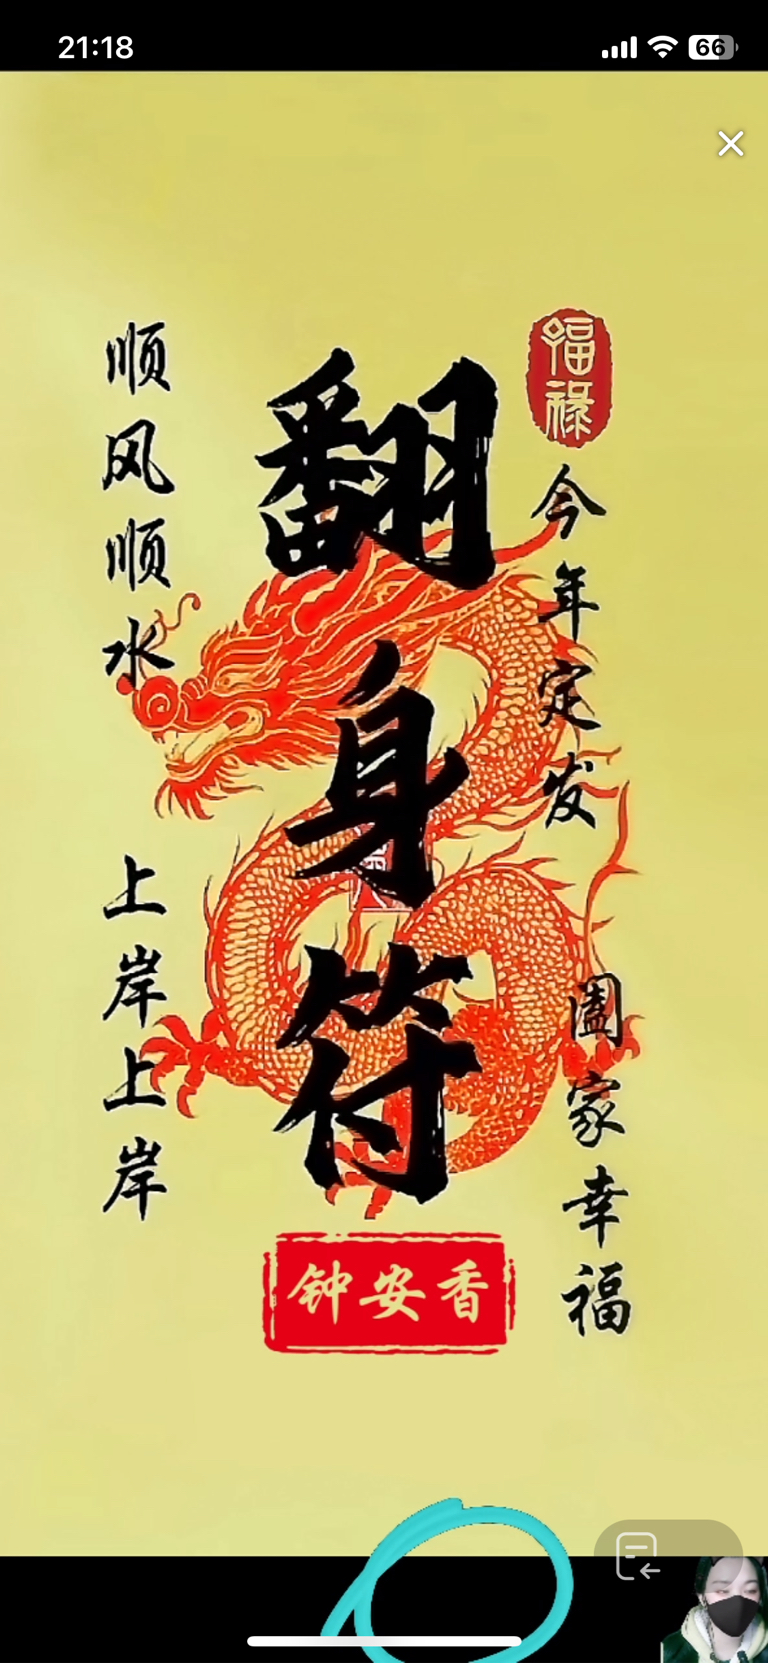 21:18
66
福禄
今年定发
阖家幸福
翻身符
钟安香
顺风顺水
上岸上岸